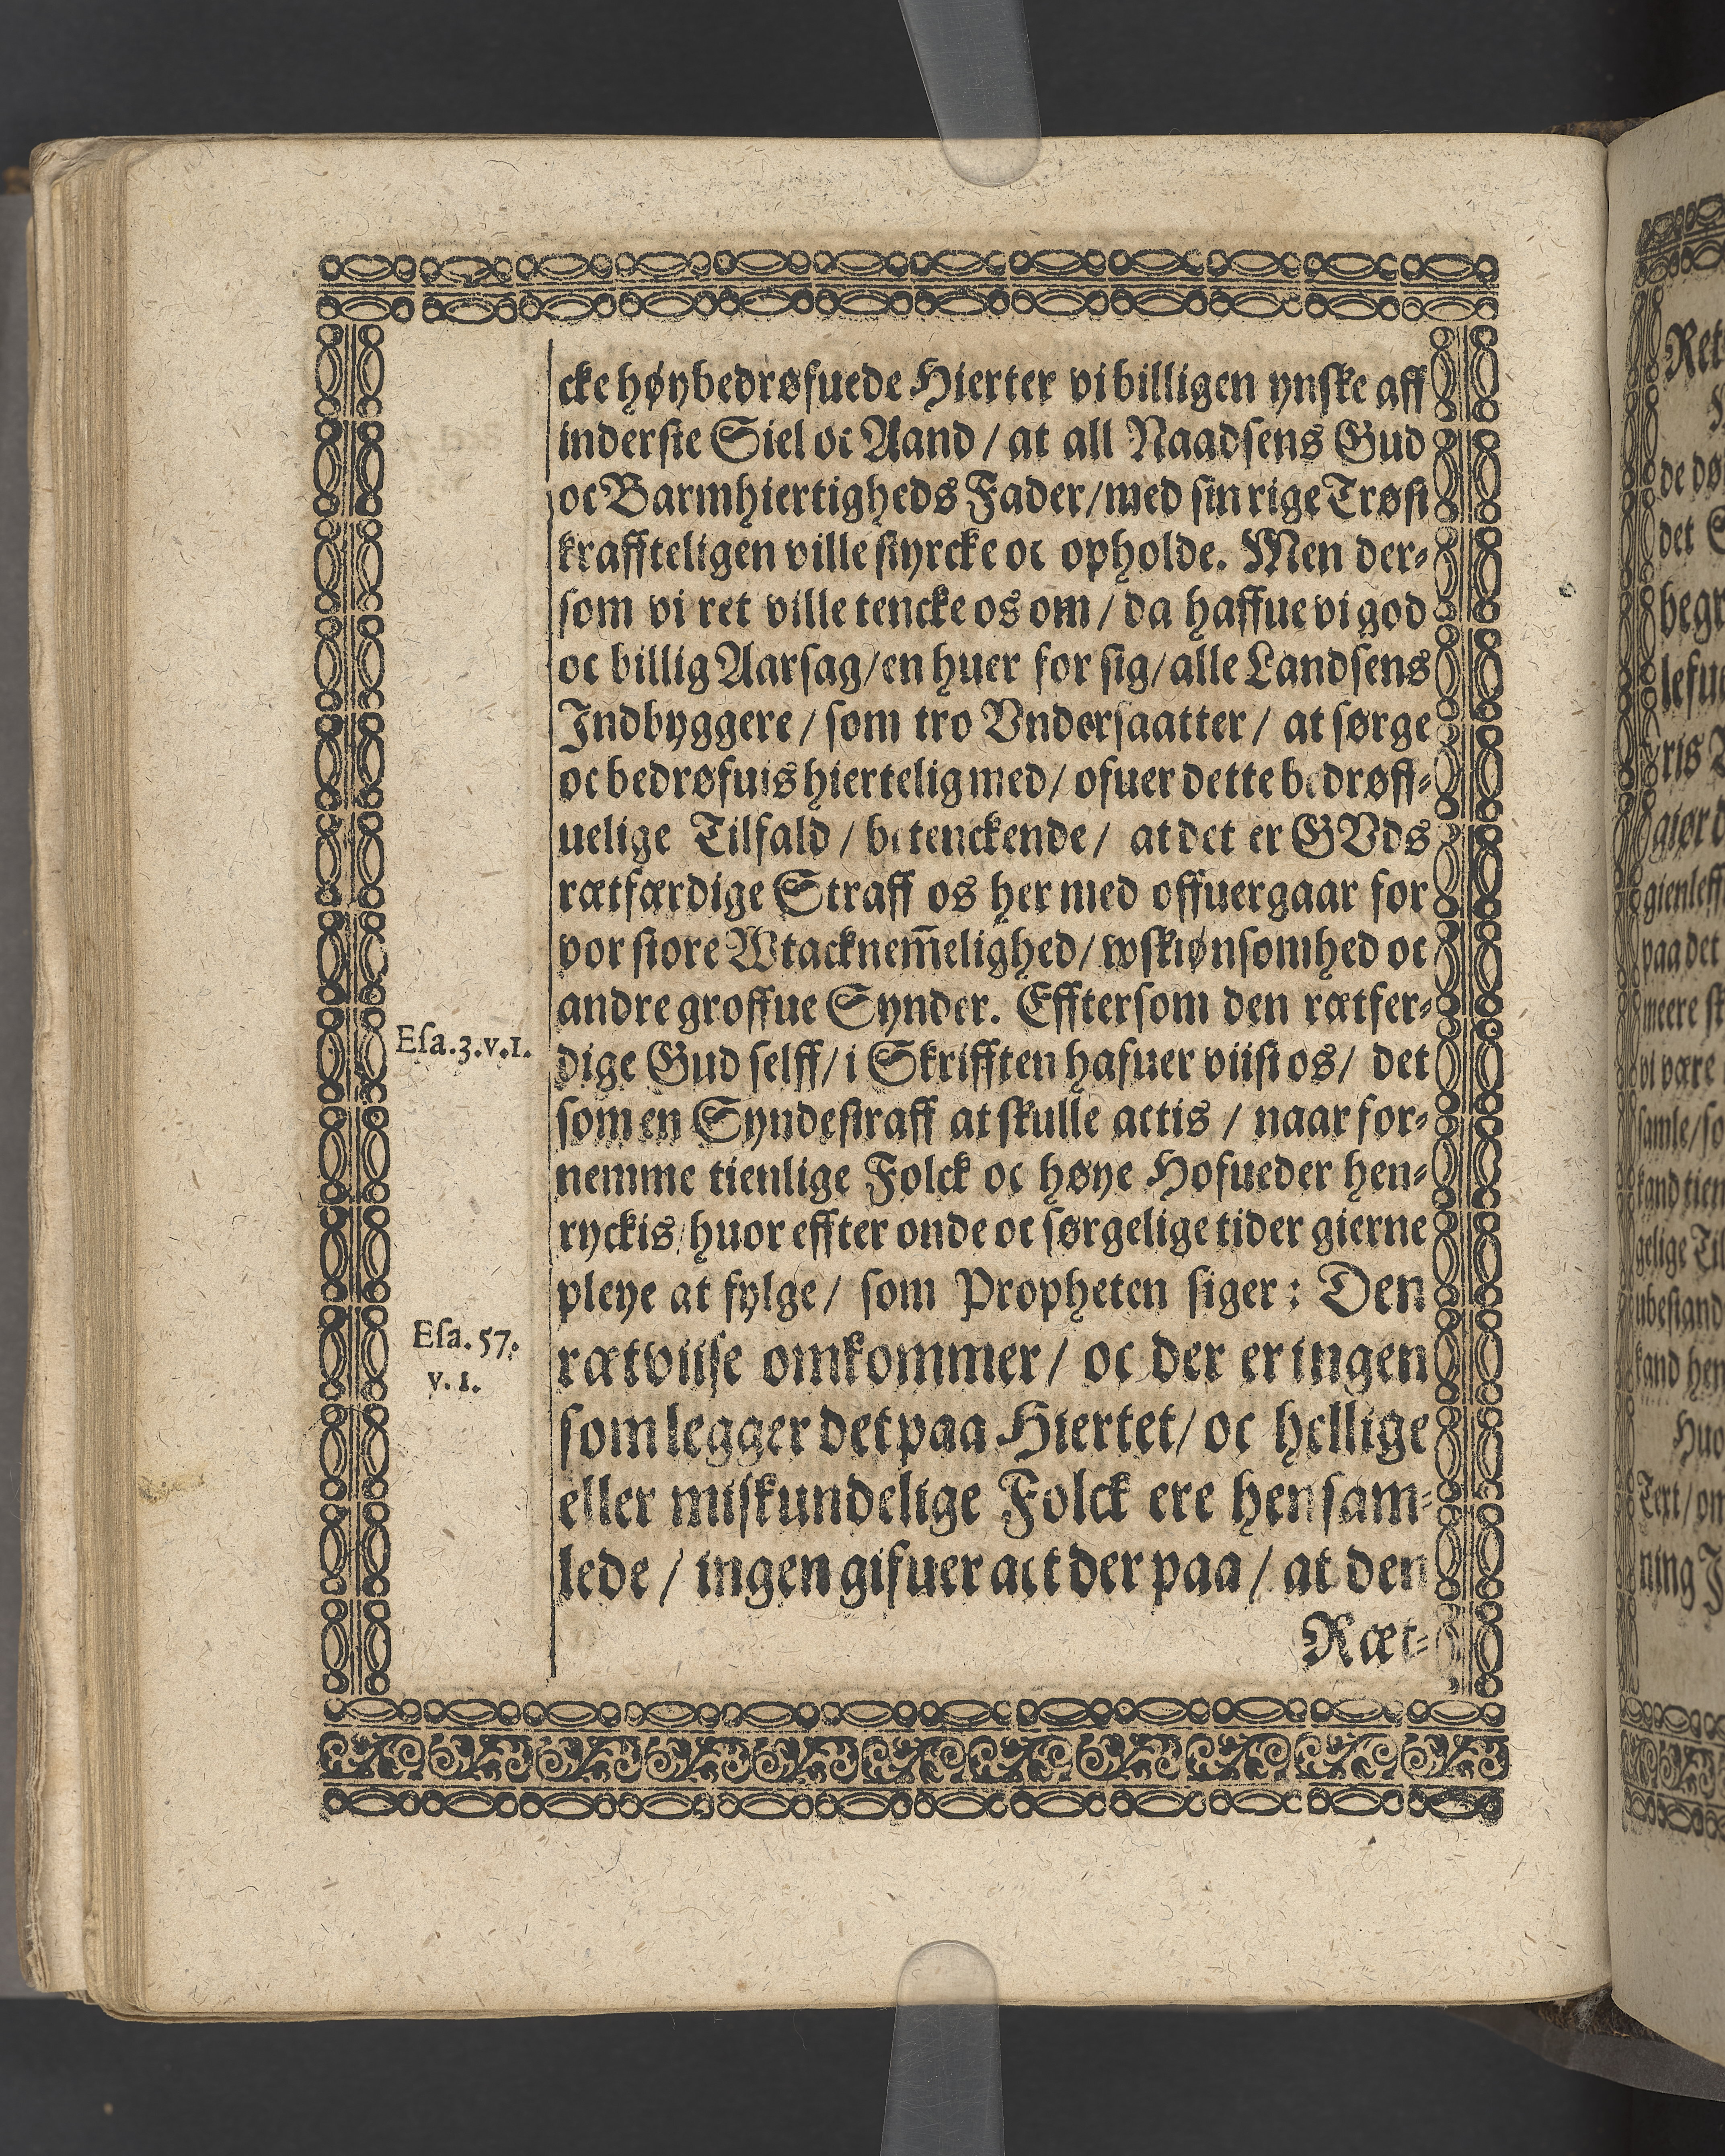 cke høybedrøfuede Hierter vi billigen ynske aff
inderste Siel oc Aand / at all Naadsens Gud
oc Barmhiertigheds Fader/med sin rige Trøst
kraffteligen ville styrcke oc opholde. Men der-
som vi ret ville tencke os om / da haffue vi god
oc billig Aarsag/en huer for sig/alle Landsens
Indbyggere / som tro Vndersaatter / at sørge
oc bedrøfuis hiertelig med/ ofuer dette bedrøff-
uelige Tilfald / betenckende / at det er GVds
rætfærdige Straff os her med offuergaar for
vor store Wtacknem̅elighed/wskiønsomhed oc
andre groffue Synder. Efftersom den rætfer-
Esa.3.v.1.
dige Gud selff/ i Skrifften hafuer viist os/ det
som en Syndestraff at skulle actis / naar for-
nemme tienlige Folck oc høye Hofueder hen-
ryckis/huor effter onde oc sørgelige tider gierne
pleye at fylge/ som Propheten siger: Den
Esa. 57.
v. 1.
rætviise omkommer/ oc der er ingen
som legger det paa Hiertet/ oc hellige
eller miskundelige Folck ere hen sam-
lede / ingen gifuer act der paa / at den
Ræt-